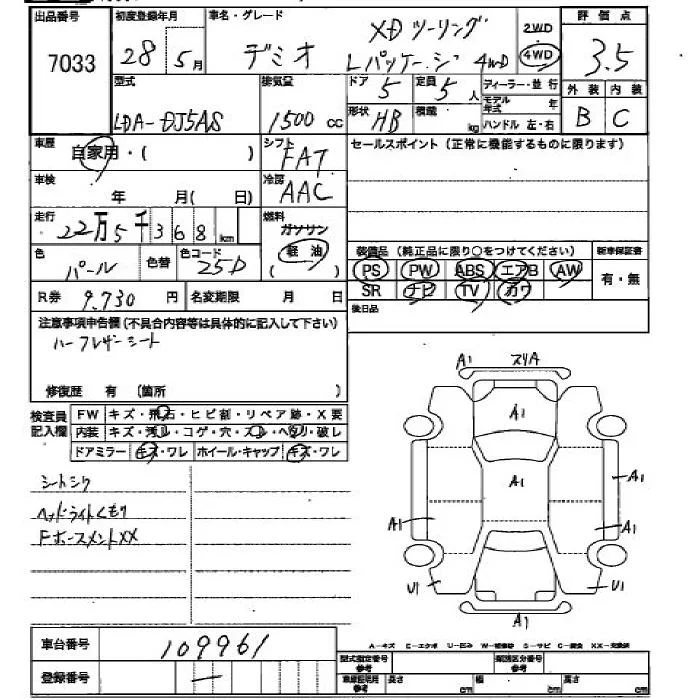 出品番号
7033
初度登録年月
28 5月
車名・グレード
デミオ XD ツーリング
Lパッケージ 4WD
2WD
4WD
評価点
3.5
外装 内装
B C
型式
LDA-DJ5AS
排気量
1500 cc
ドア 5
定員 5人
形状 HB
積載 kg
ディーラー・並行
モデル年式 年
ハンドル 左・右
車歴
自家用・( )
シフト
FAT
車検
年 月( 日)
冷房
AAC
走行
22万5千368 km
燃料
ガソリン
軽油
( )
色
パール
色替
色コード
25D
R券 9,730 円
名変期限 月 日
セールスポイント(正常に機能するものに限ります)
装備品 (純正品に限り○をつけてください)
PS PW ABS エアB AW
SR ナビ TV カワ
新車保証書
有・無
後日品
注意事項申告欄(不具合内容等は具体的に記入して下さい)
ハーフレザーシート
修復歴 有 (箇所 )
検査員
記入欄
FW キズ・飛石・ヒビ割・リペア跡・X要
内装 キズ・汚れ・コゲ・穴・スレ・ヘタリ・破レ
ドアミラー キズ・ワレ ホイール・キャップ キズ・ワレ
シートシワ
ヘッドライトくもり
FホースメントXX
A1 スリA
A1
A1
A1
A1
A1
U1 U1
A1
車台番号
109961
登録番号
—
A-キズ E-エクボ U-凹み W-補修跡 S-サビ C-腐食 XX-交換済
型式指定番号
参考
類別区分番号
参考
車庫証明用
参考
長さ cm
幅 cm
高さ cm